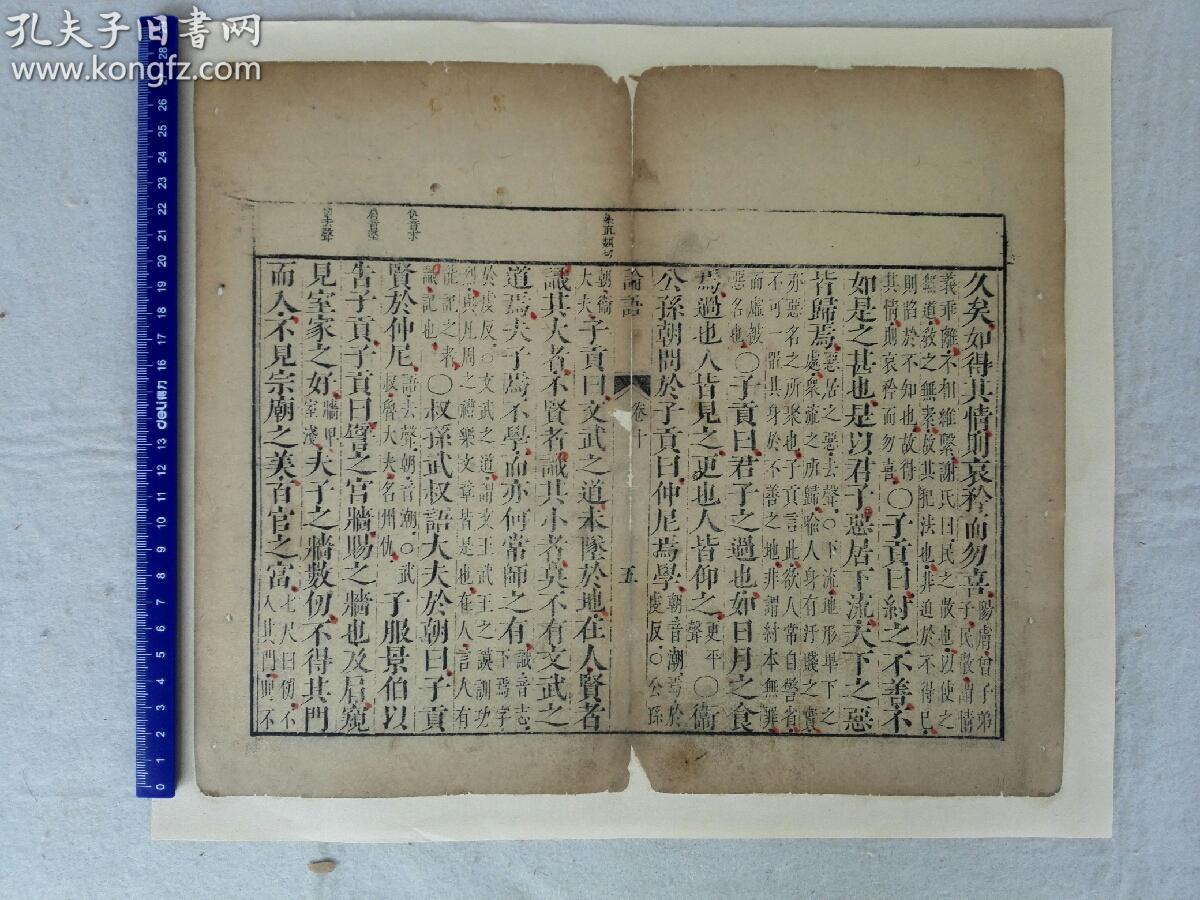 孔夫子旧書网
www.kongfz.com
久矣如得其情則哀矜而勿喜
陽膚曾子弟
子民散謂情
義乖離不相維繫謝氏曰民之散也以使之
無道教之無素故其犯法也非迫於不得已
則陷於不知也故得
其情則哀矜而勿喜
○子貢曰紂之不善不
如是之甚也是以君子惡居下流天下之惡
皆歸焉
惡居之惡去聲○下流地形卑下之
處衆流之所歸喻人身有汙賤之實
亦惡名之所聚也子貢言此欲人常自警省
不可一置其身於不善之地非謂紂本無罪
而虛被
惡名也
○子貢曰君子之過也如日月之食
焉過也人皆見之更也人皆仰之
更平
聲
○衞
公孫朝問於子貢曰仲尼焉學
朝音潮焉於
虔反○公孫
論語 卷十 五
朝衞
大夫
子貢曰文武之道未墜於地在人賢者
識其大者不賢者識其小者莫不有文武之
道焉夫子焉不學而亦何常師之有
識音志
下焉字
於虔反○文武之道謂文王武王之謨訓功
烈與凡周之禮樂文章皆是也在人言人有
能記之者
識記也
○叔孫武叔語大夫於朝曰子貢
賢於仲尼
語去聲朝音潮○武
叔魯大夫名州仇
子服景伯以
告子貢子貢曰譬之宮牆賜之牆也及肩窺
見室家之好
牆卑
室淺
夫子之牆數仞不得其門
而入不見宗廟之美百官之富
七尺曰仞不
入其門則不
deli得力
0 1 2 3 4 5 6 7 8 9 10 11 12 13 14 15 16 17 18 19 20 21 22 23 24 25 26 28